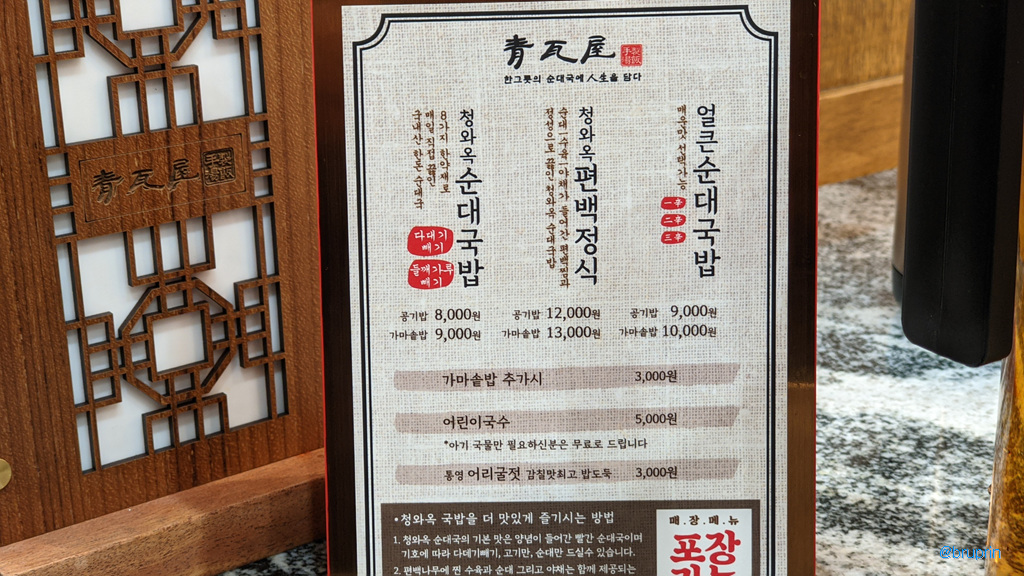 靑瓦屋
手製
湯飯
한그릇의 순대국에 人生을 담다
얼큰순대국밥
매운맛 선택가능
一辛
二辛
三辛
공기밥 9,000원
가마솥밥 10,000원
청와옥편백정식
순대, 수육, 야채가 들어간 편백찜과
정성으로 끓인 청와옥 순대국밥
공기밥 12,000원
가마솥밥 13,000원
청와옥순대국밥
8가지 한약재로
매일 직접 끓인
국내산 한돈 순대국
다대기
빼기
들깨가루
빼기
공기밥 8,000원
가마솥밥 9,000원
가마솥밥 추가시 3,000원
어린이국수 5,000원
*아기 국물만 필요하신분은 무료로 드립니다
통영 어리굴젓 감칠맛최고 밥도둑 3,000원
•청와옥 국밥을 더 맛있게 즐기시는 방법
1. 청와옥 순대국의 기본 맛은 양념이 들어간 빨간 순대국이며
기호에 따라 다데기빼기, 고기만, 순대만 드실수 있습니다.
2. 편백나무에 찐 수육과 순대 그리고 야채는 함께 제공되는
매.장.메.뉴
포장
靑瓦屋
@bruprin